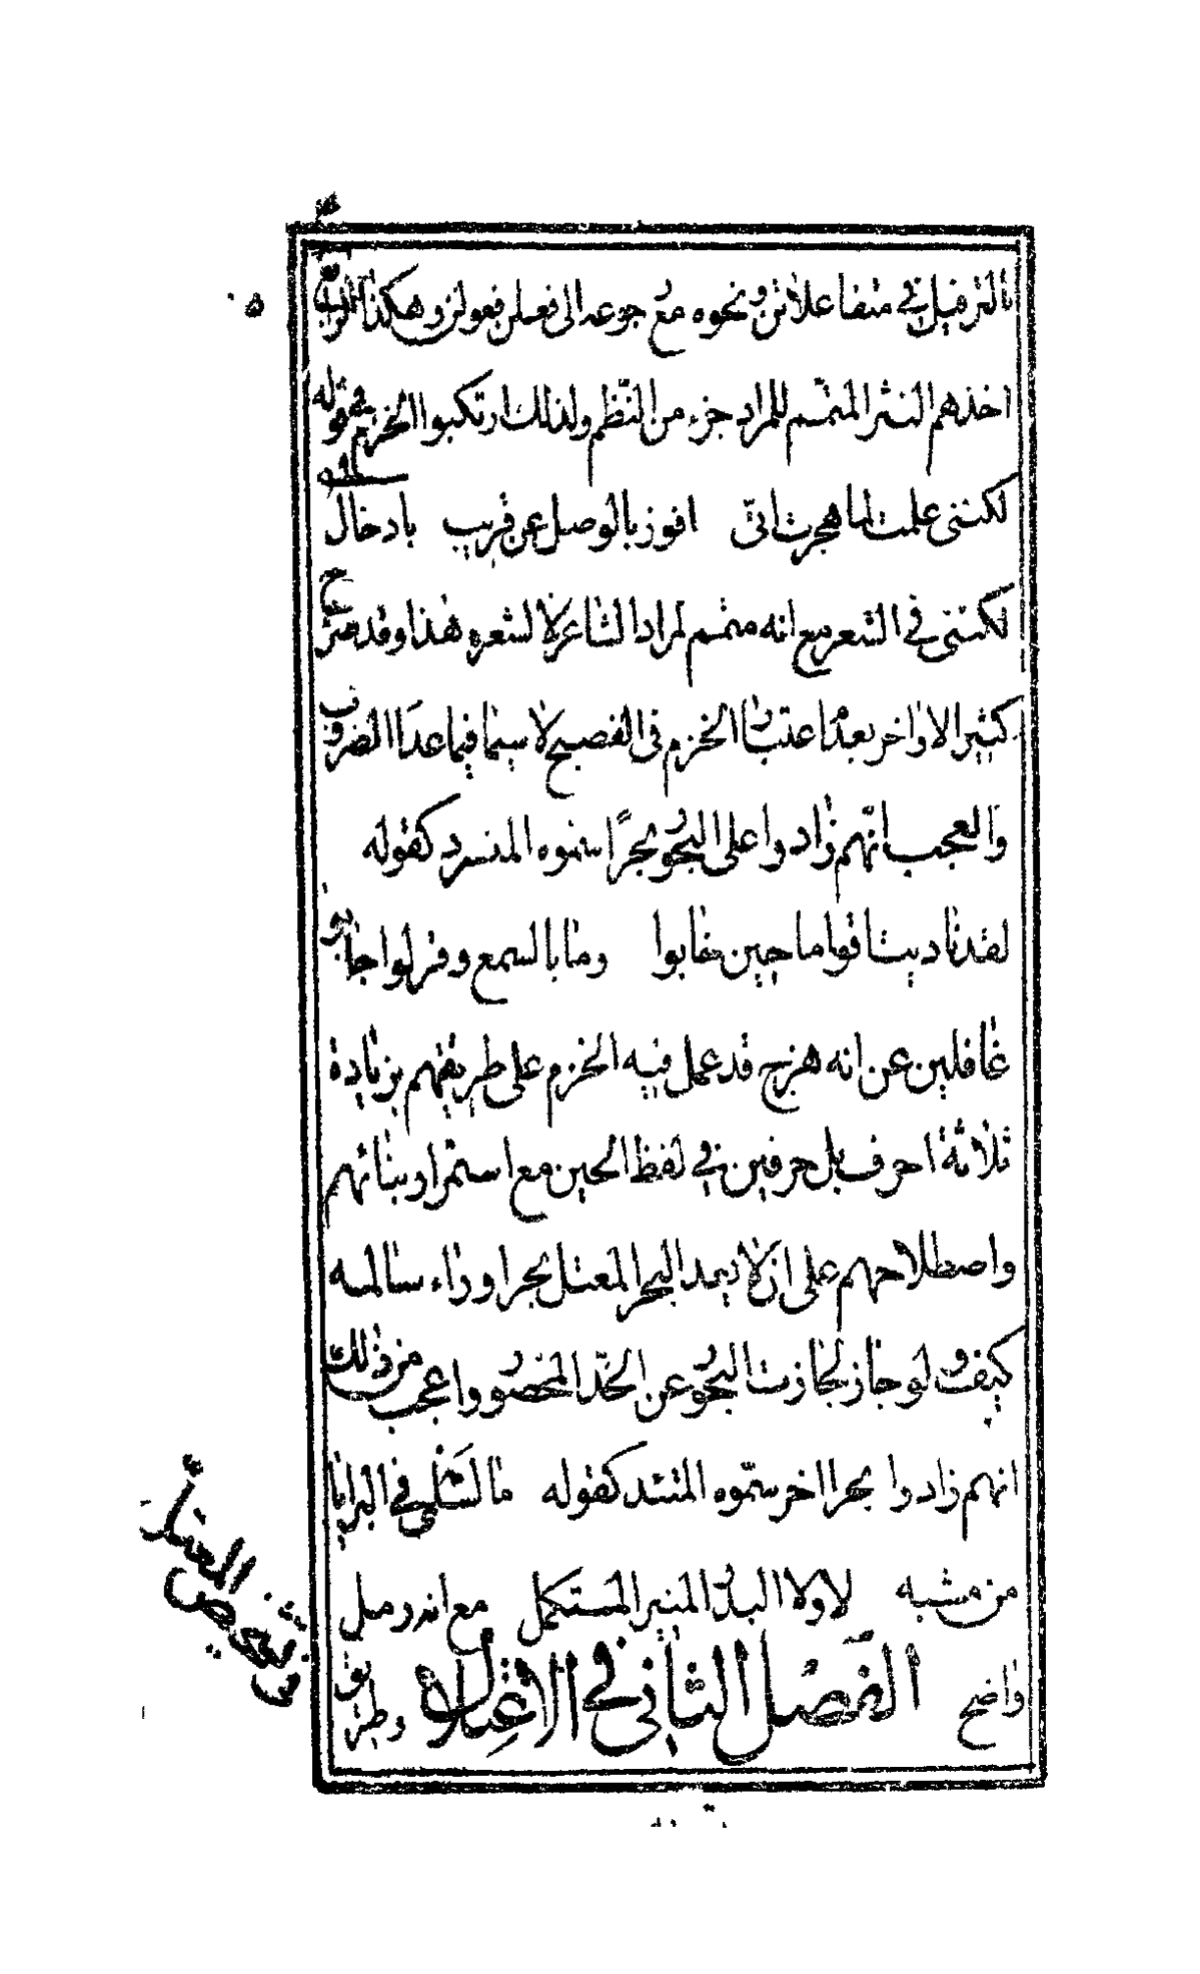 بالترفيل في متفاعلاتن ونحوه مع جوعه الى فعلن فعولن وهكذا
اخذهم النثر المتمم للمراد جزء من النظم ولذلك ارتكبوا الخزم فى قوله
لكننى علمت لما هجرت انّى افوز بالوصل عن قريب بادخال
لكننى في الشعر مع انه متمم لمراد الشاعر لا لشعره هذا وقد صرّح
كثير الاواخر بعدم اعتبار الخزم فى الفصيح لا سيما فيما عدا المضروب
والعجب انّهم زادوا على البحور بحرًا سموه المنسرد كقوله
لقد ناديت اقواما حين خابوا وما بالسمع وقر لو اجابوا
غافلين عن انه هزج قد عمل فيه الخزم على طريقهم بزيادة
ثلاثة احرف بل حرفين في لفظ الحين مع استمرار بنائهم
واصطلاحهم على ان لا يعد البحر المعتل بحرا وراء سالمه
كيف ولو جاز لجازت البحور عن الحدّ المحصور واعجب من ذلك
انهم زادوا بحرا اخر سمّوه المتئد كقوله ما لسلمى في البرايا
من مشبه لا ولا البدر المنير المستكمل مع انه رمل
واضح الفصل الثانى في الاعتلال وطريق